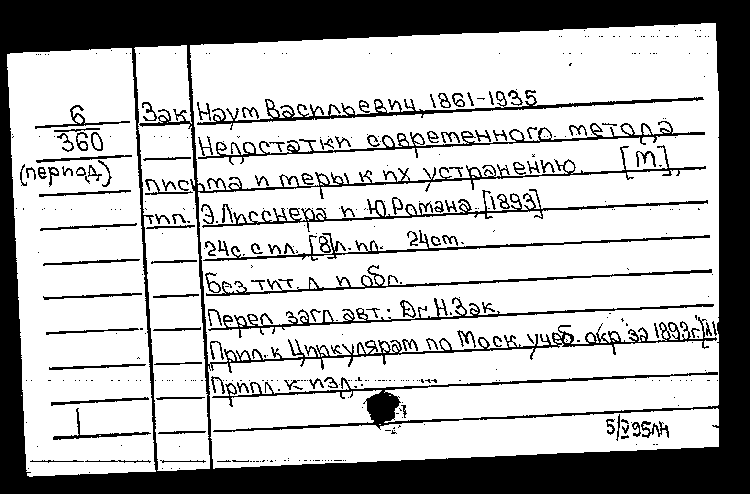 6 Зак, Наум Васильевич, 1861-1935
360 Недостатки современного метода
(период) письма и меры к их устранению. [М.],
тип. Э.Лисснера и Ю.Романа, [1893]
24с. с ил., [8]л. ил. 24см.
Без тит. л. и обл.
Перед загл. авт.: Dr. Н.Зак.
Прил. к Циркулярам по Моск. учеб. окр. за 1893г.
Прил. к изд.: ...
5/V 95 ЛН